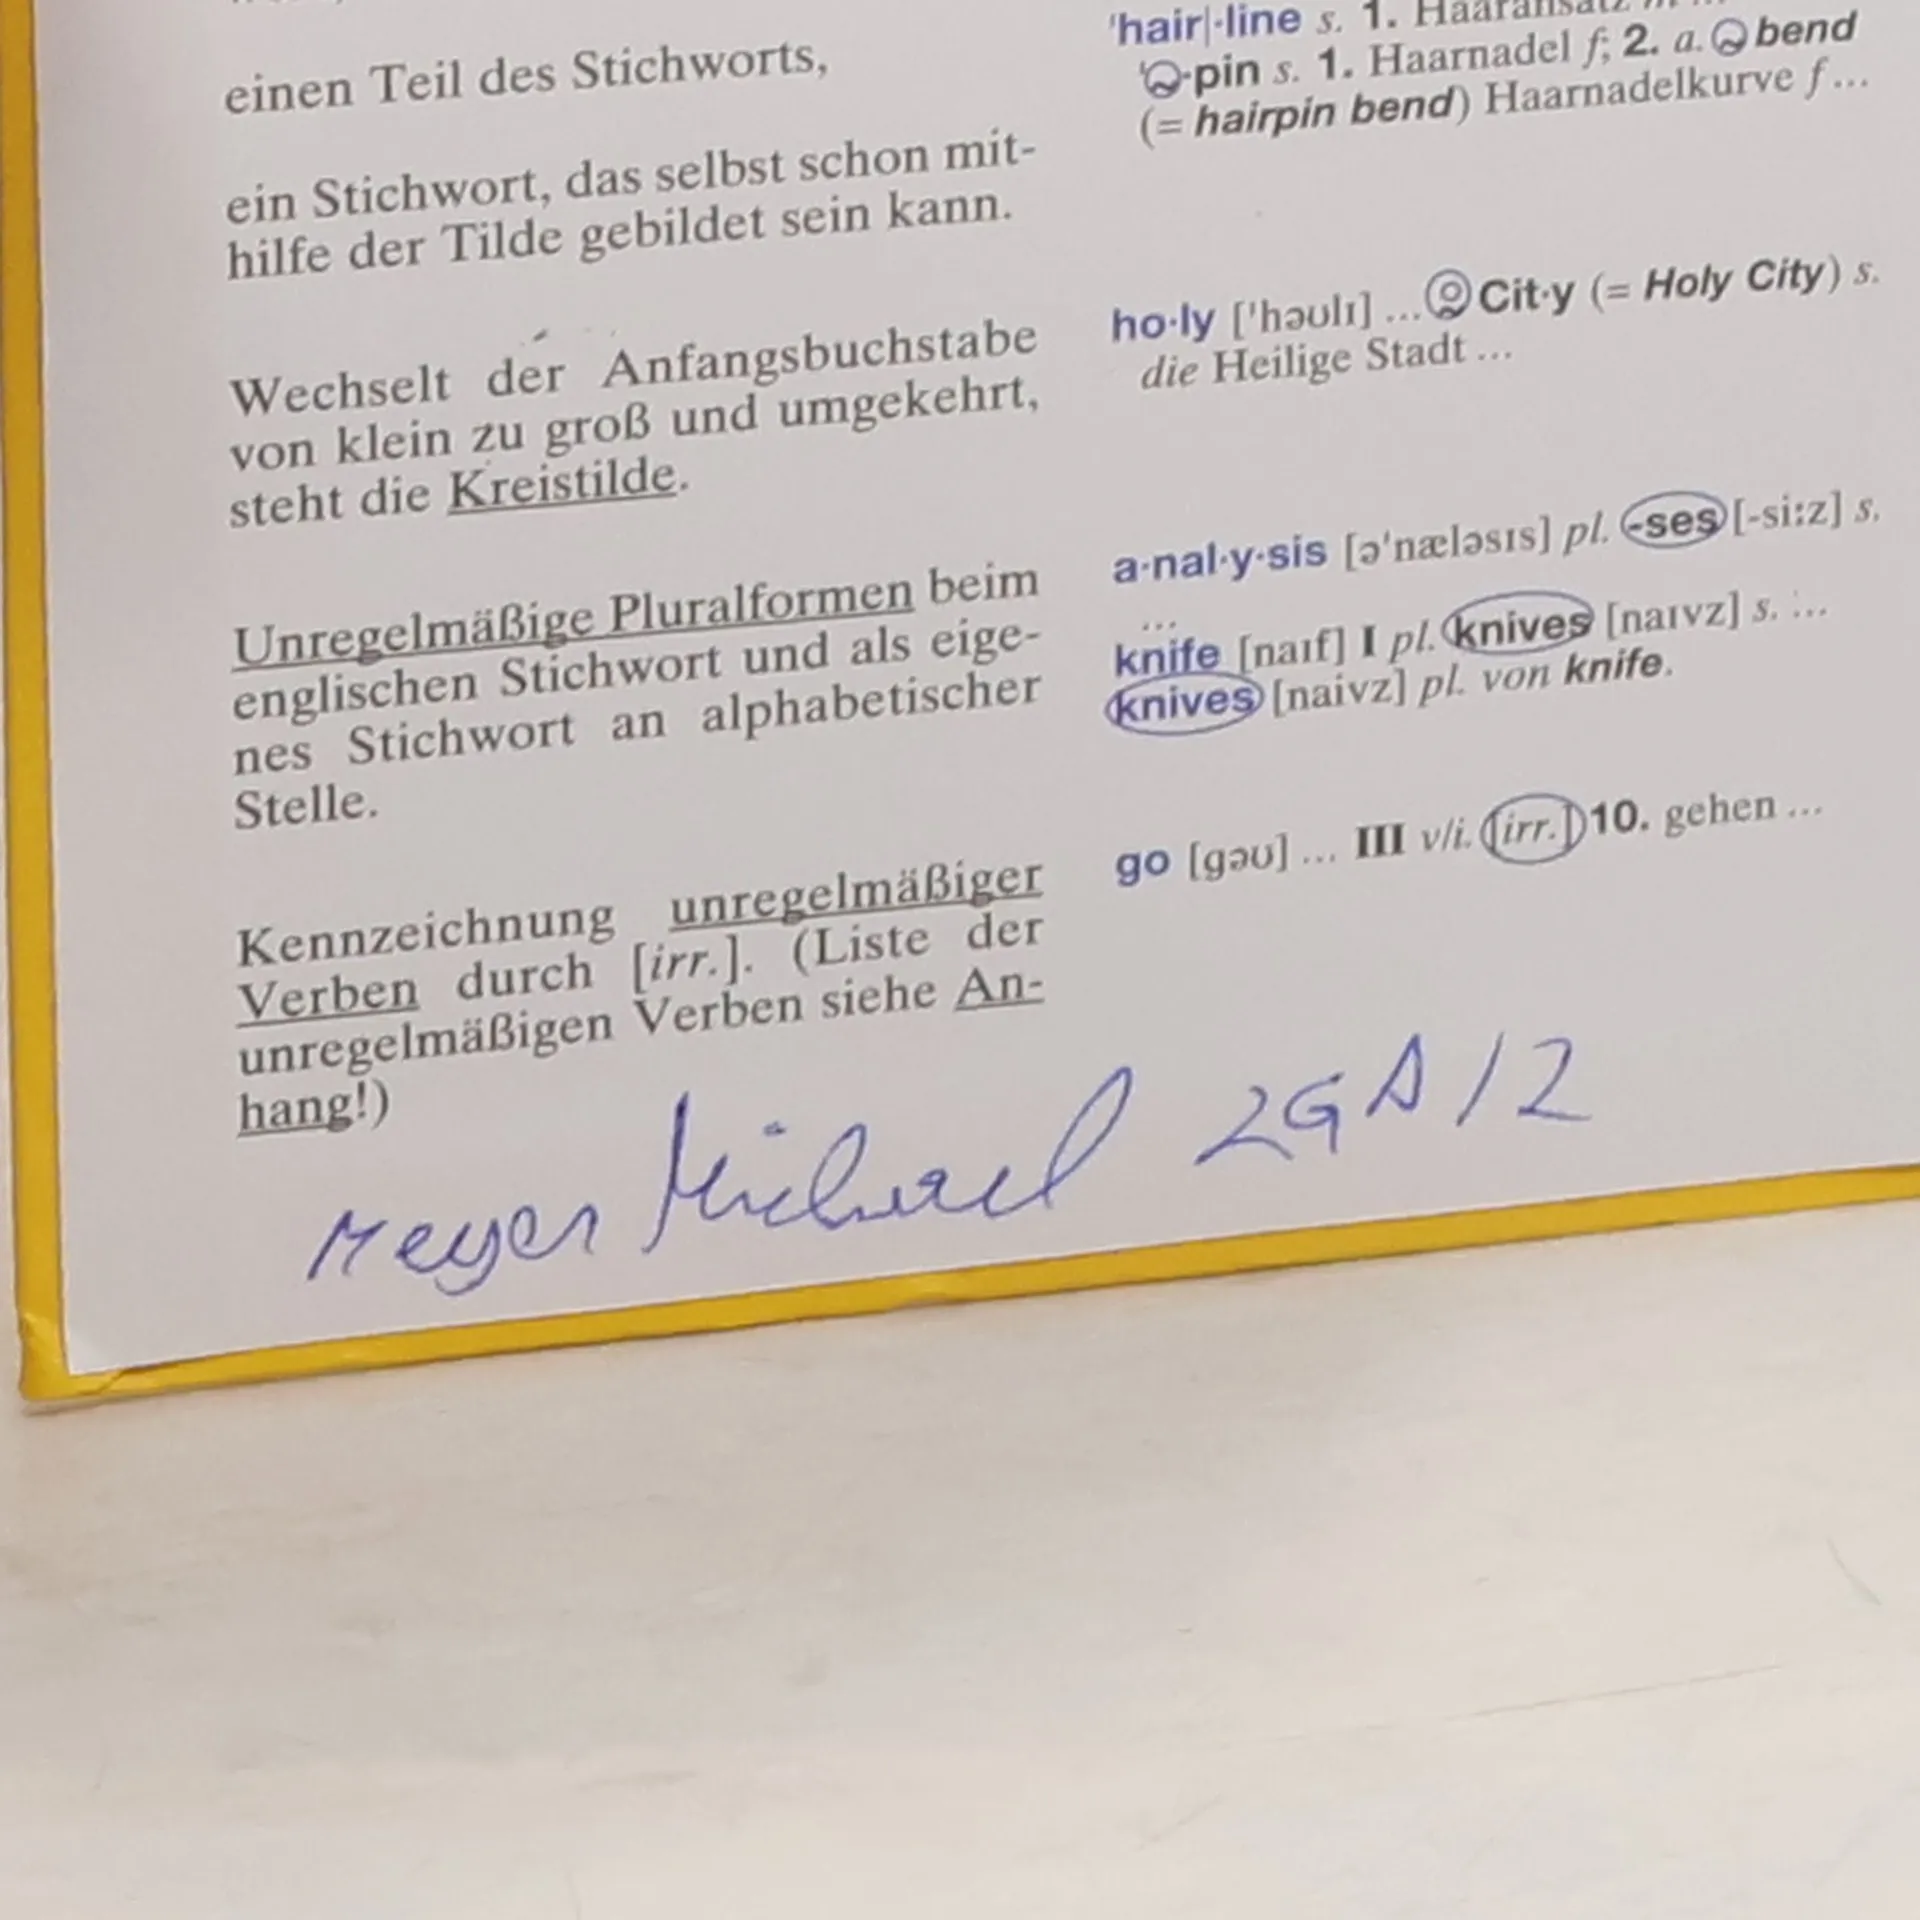 einen Teil des Stichworts,
ein Stichwort, das selbst schon mit-
hilfe der Tilde gebildet sein kann.
Wechselt der Anfangsbuchstabe
von klein zu groß und umgekehrt,
steht die Kreistilde.
Unregelmäßige Pluralformen beim
englischen Stichwort und als eige-
nes Stichwort an alphabetischer
Stelle.
Kennzeichnung unregelmäßiger
Verben durch [irr.]. (Liste der
unregelmäßigen Verben siehe An-
hang!)
'hair|·line s. 1. Haaransatz m ...
'~·pin s. 1. Haarnadel f; 2. a. ~ bend
(= hairpin bend) Haarnadelkurve f ...
ho·ly ['həʊlɪ] ... ~ Cit·y (= Holy City) s.
die Heilige Stadt ...
a·nal·y·sis [ə'næləsɪs] pl. -ses [-siːz] s.
...
knife [naɪf] I pl. knives [naɪvz] s. ...
knives [naivz] pl. von knife.
go [gəʊ] ... III v/i. [irr.] 10. gehen ...
Meyer Michael 2GA/2